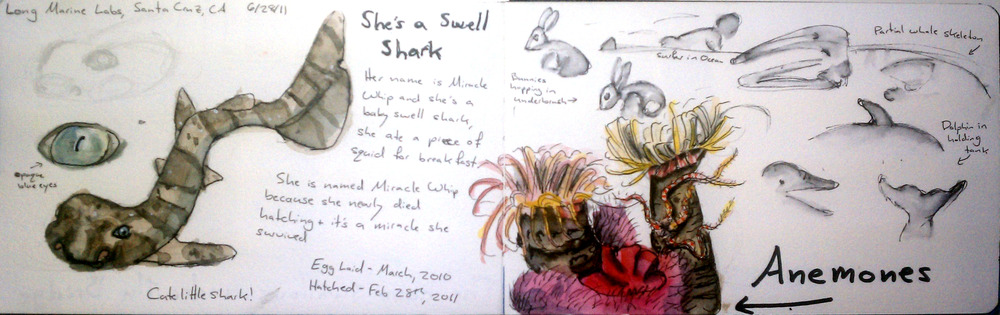 Long Marine Labs, Santa Cruz, CA 6/28/11
She's a Swell
Shark
Her name is Miracle
Whip and she's a
baby swell shark,
she ate a piece of
squid for breakfast.
She is named Miracle Whip
because she nearly died
hatching + it's a miracle she
survived
Egg Laid - March, 2010
Hatched - Feb 28th, 2011
opaque
blue eyes
Cute little shark!
Bunnies
hopping in
underbrush →
surfer in Ocean
Partial whale skeleton
Dolphin in
holding
tank
Anemones